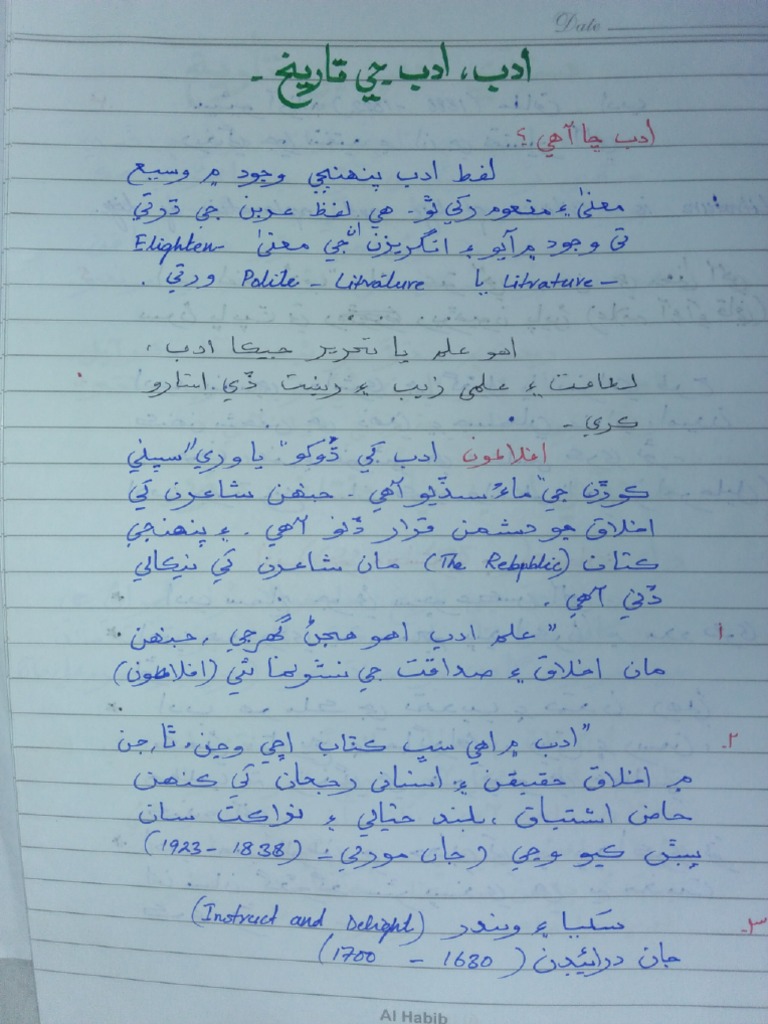 Date
ادب، ادب جي تاريخ -
ادب ڇا آهي؟
لفظ ادب پنهنجي وجود ۾ وسيع
معنيٰ ۽ مفهوم رکي ٿو۔ هي لفظ عربن جي ڌرتي
تي وجود ۾ آيو ۽ انگريزن ان جي معنيٰ Elighten
Litrature – يا Polite – Litrature ورتي .
اهو علم يا تحرير جيڪا ادب ،
لطافت ۽ علمي زيب ۽ زينت ڏي اشارو
ڪري -
افلاطون ادب کي "ڌوڪو" يا وري "سڀني
ڪوڙن جي ماءُ" سڏيو آهي . جنهن شاعرن کي
اخلاق جو دشمن قرار ڏنو آهي . ۽ پنهنجي
ڪتاب (The Rebpublic) مان شاعرن کي نيڪالي
ڏني آهي .
۱. "علم ادب اهو هجڻ گهرجي ، جنهن
مان اخلاق ۽ صداقت جي نشونما ٿئي (افلاطون)
۲. "ادب ۾ اهي سڀ ڪتاب اچي وڃن ٿا، جن
۾ اخلاق حقيقن ۽ انساني رجحان کي ڪنهن
خاص اشتياق ، بلند خيالي ۽ نزاڪت سان
پيش ڪيو وڃي (جان مورلي - (1838 - 1923)
۳. سکيا ۽ وندر (Instruct and Delight)
جان ڊرائيڊن (1630 - 1700)
Al Habib